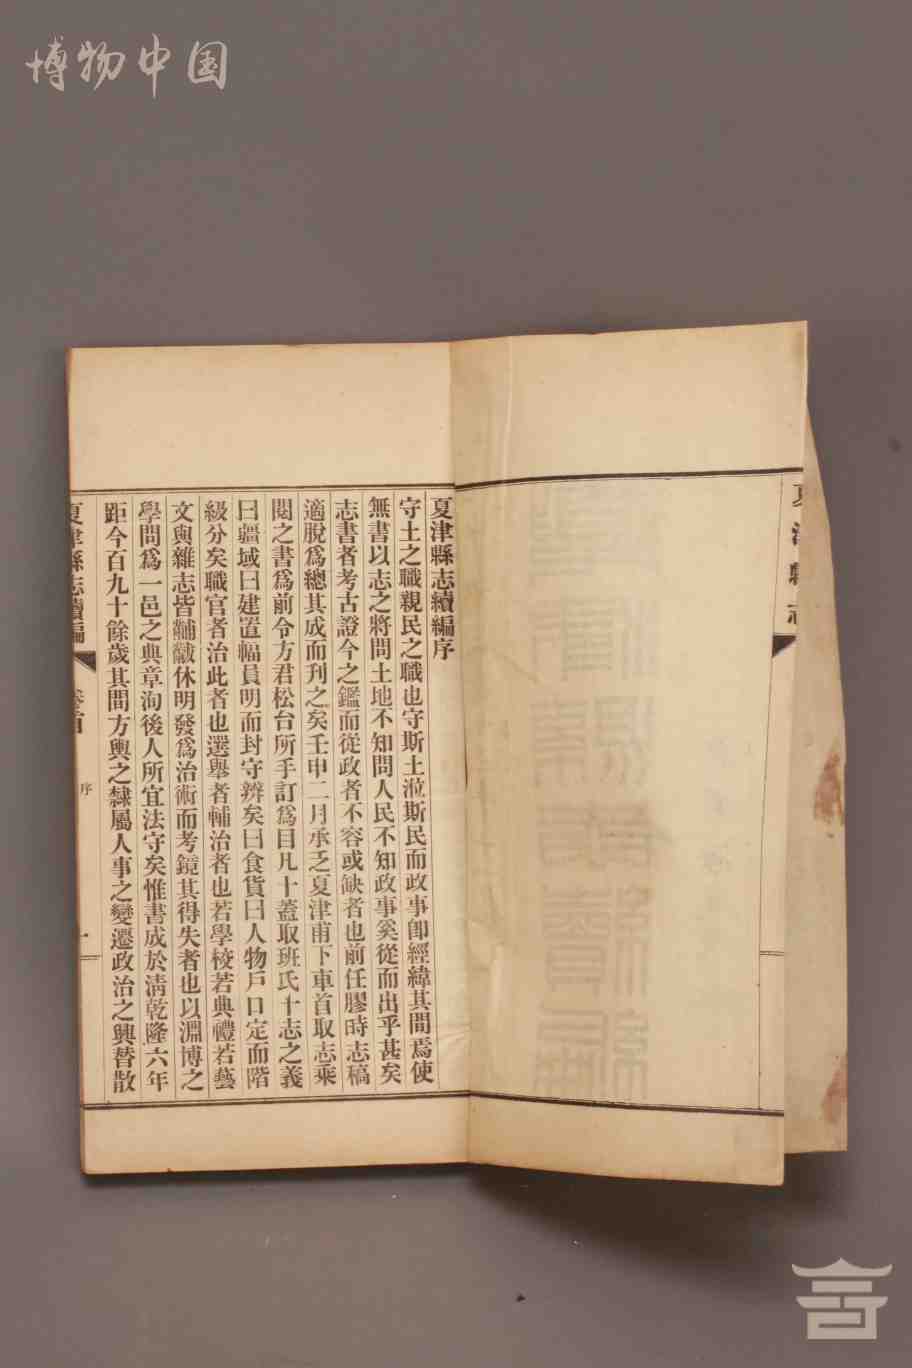 博物中国
夏津縣志
夏津縣志續編序
守土之職親民之職也守斯土涖斯民而政事卽經緯其間焉使
無書以志之將問土地不知問人民不知政事奚從而出乎甚矣
志書者考古證今之鑑而從政者不容或缺者也前任膠時志稿
適脫爲總其成而刋之矣壬申二月承乏夏津甫下車首取志乘
閱之書爲前令方君松台所手訂爲目凡十蓋取班氏十志之義
曰疆域曰建置幅員明而封守辨矣曰食貨曰人物戶口定而階
級分矣職官者治此者也選舉者輔治者也若學校若典禮若藝
文與雜志皆黼黻休明發爲治術而考鏡其得失者也以淵博之
學問爲一邑之典章洵後人所宜法守矣惟書成於淸乾隆六年
距今百九十餘歲其間方輿之隸屬人事之變遷政治之興替散
夏津縣志續編 卷首 序 一